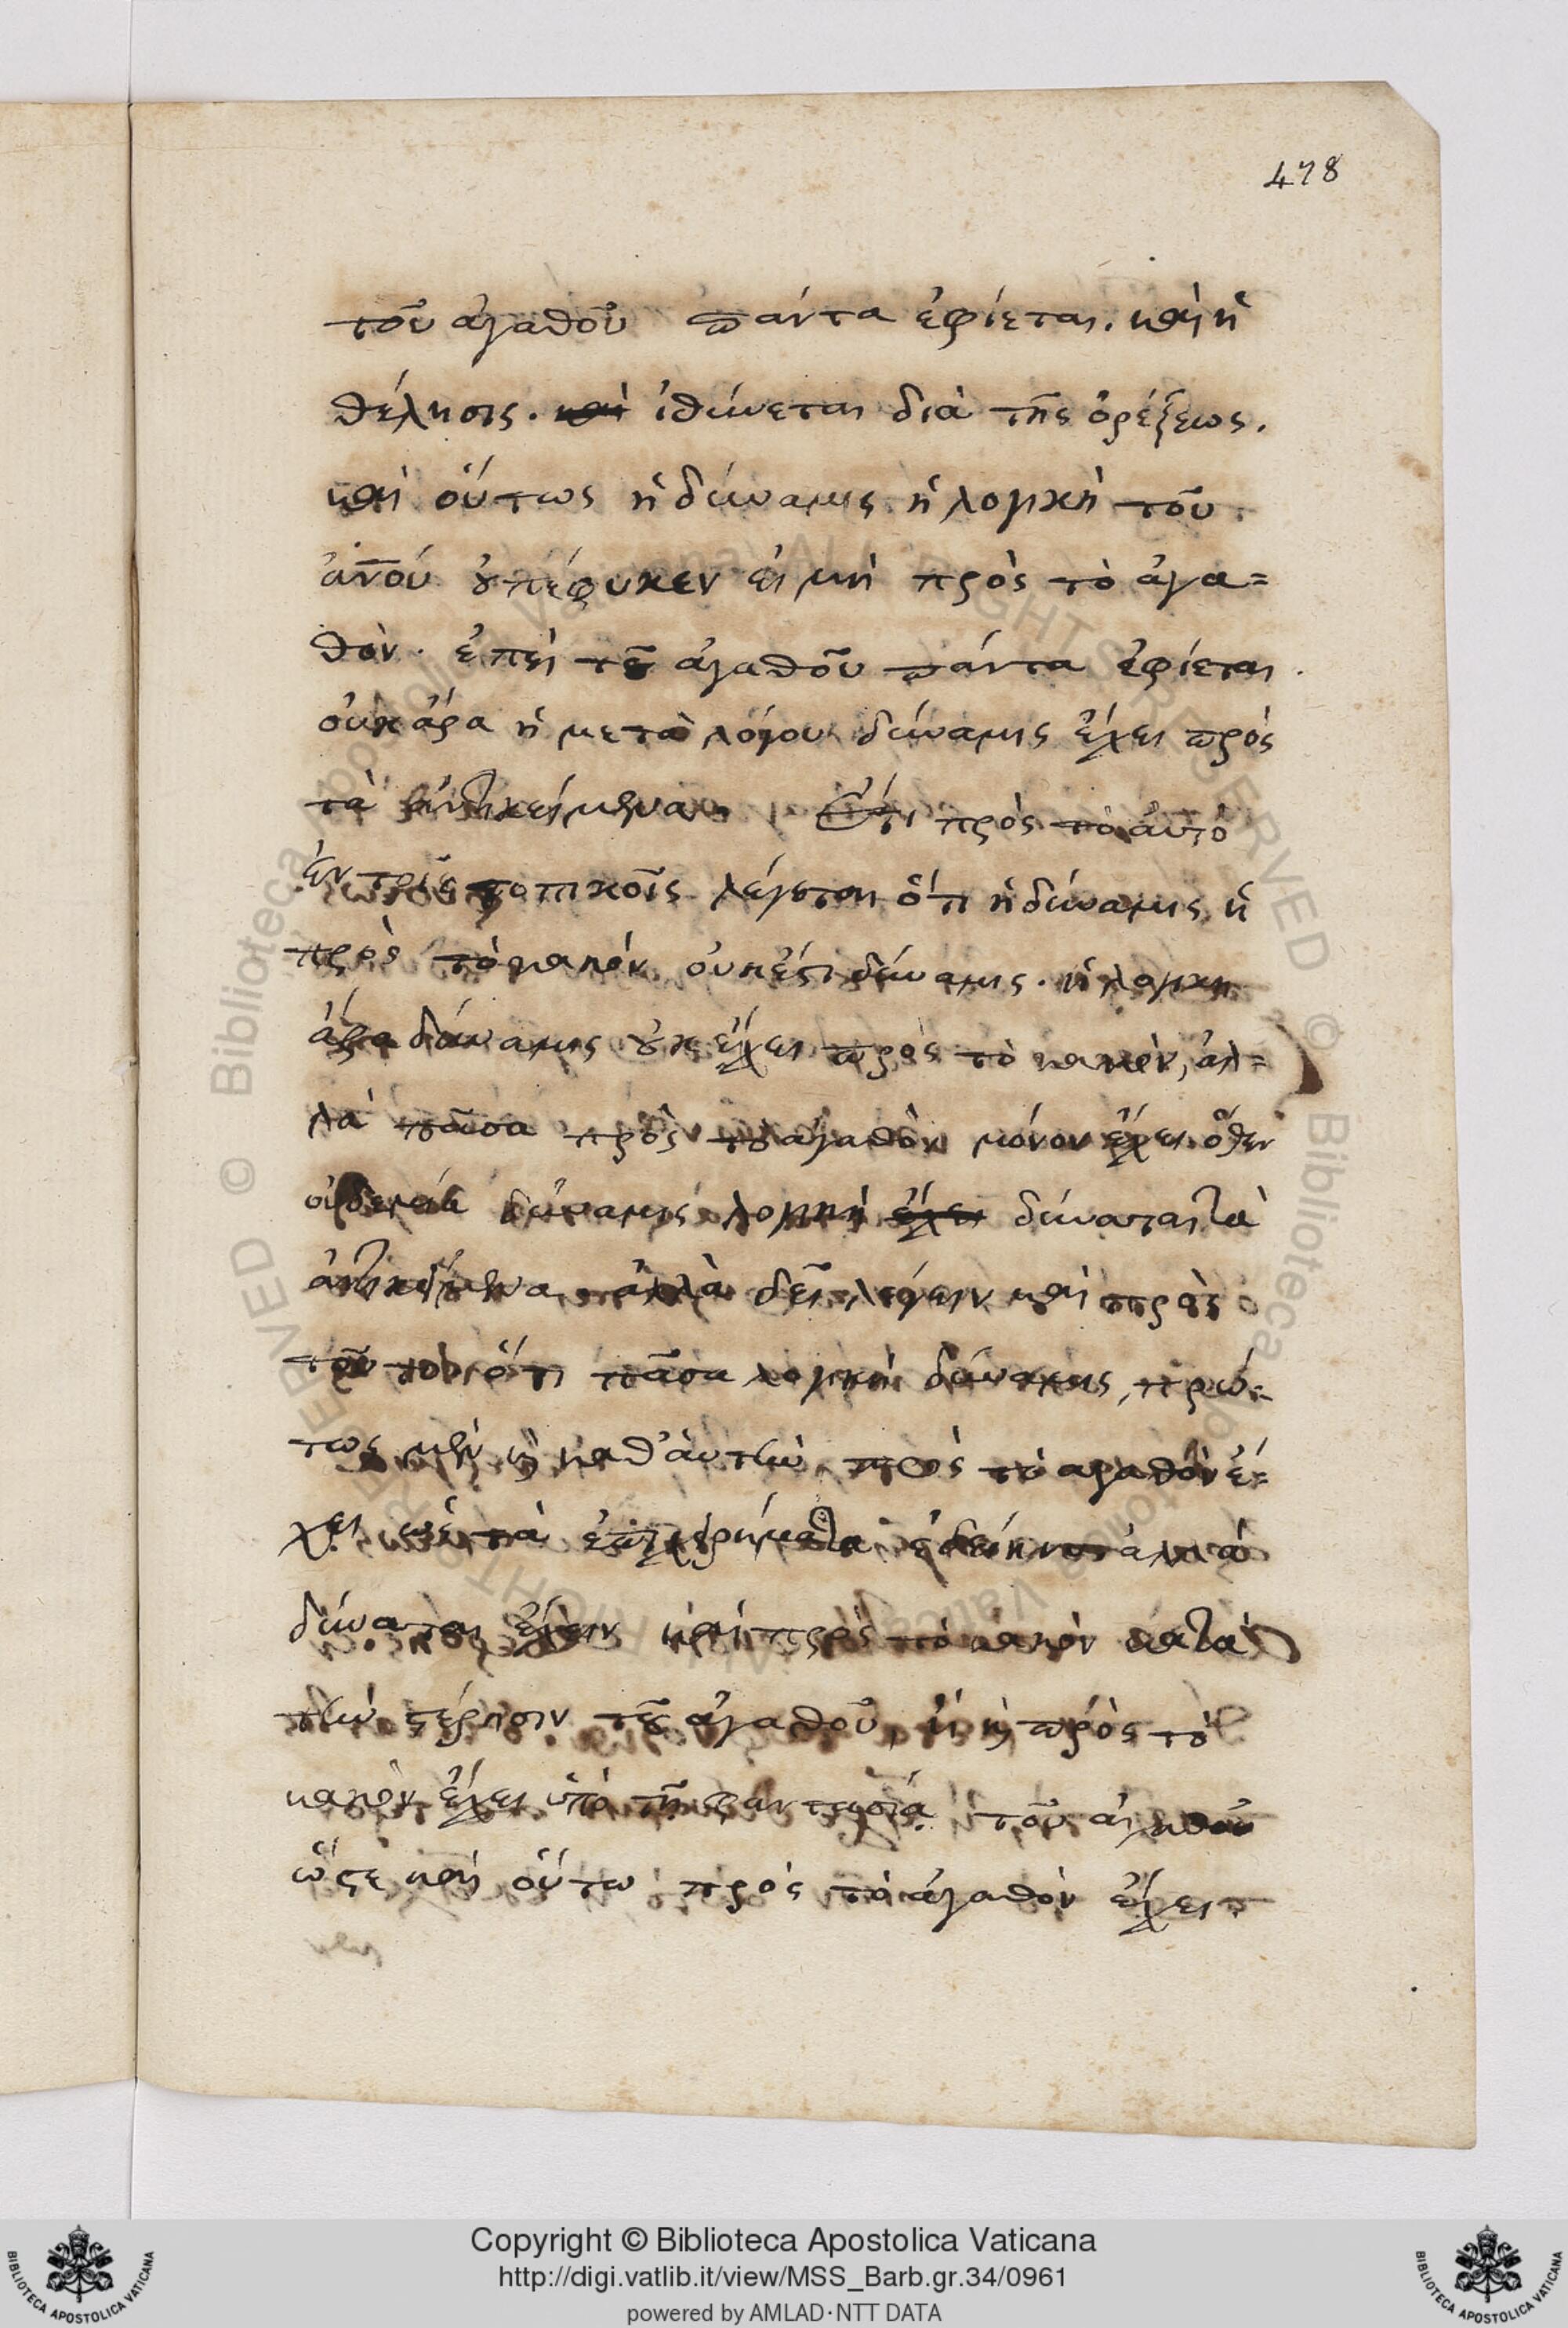 478
τοῦ ἀγαθοῦ πάντα ἐφίεται. καὶ ἡ
θέλησις. καὶ ἰθύνεται διὰ τῆς ὀρέξεως.
καὶ οὕτως ἡ δύναμις ἡ λογικὴ τοῦ
ἀνοῦ οὐ πέφυκεν εἰ μὴ πρὸς τὸ ἀγα=
θόν. ἐπεὶ τοῦ ἀγαθοῦ πάντα ἐφίεται.
οὐκ ἄρα ἡ μετὰ λόγου δύναμις ἔχει πρὸς
τὰ ἀντικείμενα Ἔτι πρὸς τὸ αὐτὸ
ἐν τοῖς τοπικοῖς λέγεται ὅτι ἡ δύναμις ἡ
πρὸς τὸ κακὸν οὐκ ἔστι δύναμις. ἡ λογικὴ
ἄρα δύναμις οὐκ ἔχει πρὸς τὸ κακὸν, ἀλ=
λὰ πᾶσα πρὸς τὸ ἀγαθὸν μόνον ἔχει. ὅθεν
οὐδεμία δύναμις λογικὴ ἔχει δύναται τὰ
ἀντικείμενα. ἀλλὰ δεῖ λέγειν καὶ πρὸς
τοῦτο ὅτι πᾶσα λογικὴ δύναμις, πρώ=
τως μὲν καὶ καθ' αὑτὴν πρὸς τὸ ἀγαθὸν ἔ=
χει ὡς τὰ ἐπιχειρήματα ἐδείκνυ ἀλλὰ
δύναται ἔχειν καὶ πρὸς τὸ κακὸν κατὰ
τὴν στέρησιν τοῦ ἀγαθοῦ, εἰ καὶ πρὸς τὸ
κακὸν ἔχει ὑπὸ τῇ φαντασίᾳ τοῦ ἀγαθοῦ
ὥστε καὶ οὕτω πρὸς τὸ ἀγαθὸν ἔχει
Copyright © Biblioteca Apostolica Vaticana
http://digi.vatlib.it/view/MSS_Barb.gr.34/0961
powered by AMLAD·NTT DATA